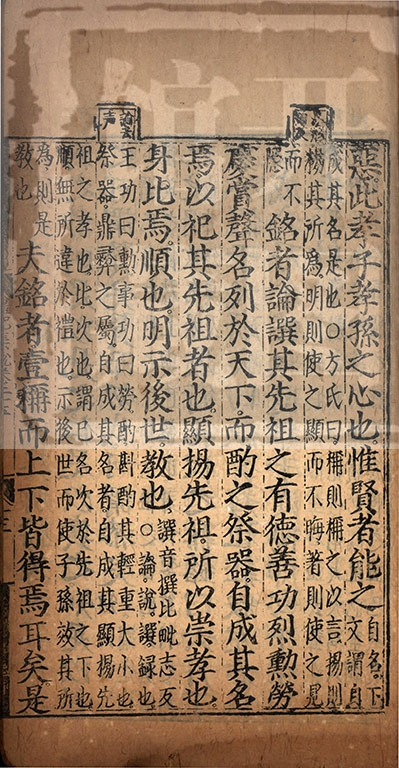 惡此孝子孝孫之心也。惟賢者能之
自名。下
文謂自
成其名是也○方氏曰稱則稱之以言。揚則
揚其所爲明則使之顯而不晦著則使之見
而不
隱
銘者論譔其先祖之有德善功烈勳勞
慶賞聲名列於天下。而酌之祭器。自成其名
焉。以祀其先祖者也。顯揚先祖。所以崇孝也。
身比焉。順也。明示後世。教也。
譔音撰比毗志反
○論。說。譔。録也
王功曰勳事功曰勞酌斟酌其輕重大小也
祭器鼎彝之屬自成其名者自成其顯揚先
祖之孝也比次也謂已名次於先祖之下也
順無所違於禮也示後世而使子孫效其所
為則是
教也
夫銘者壹稱而上下皆得焉耳矣是